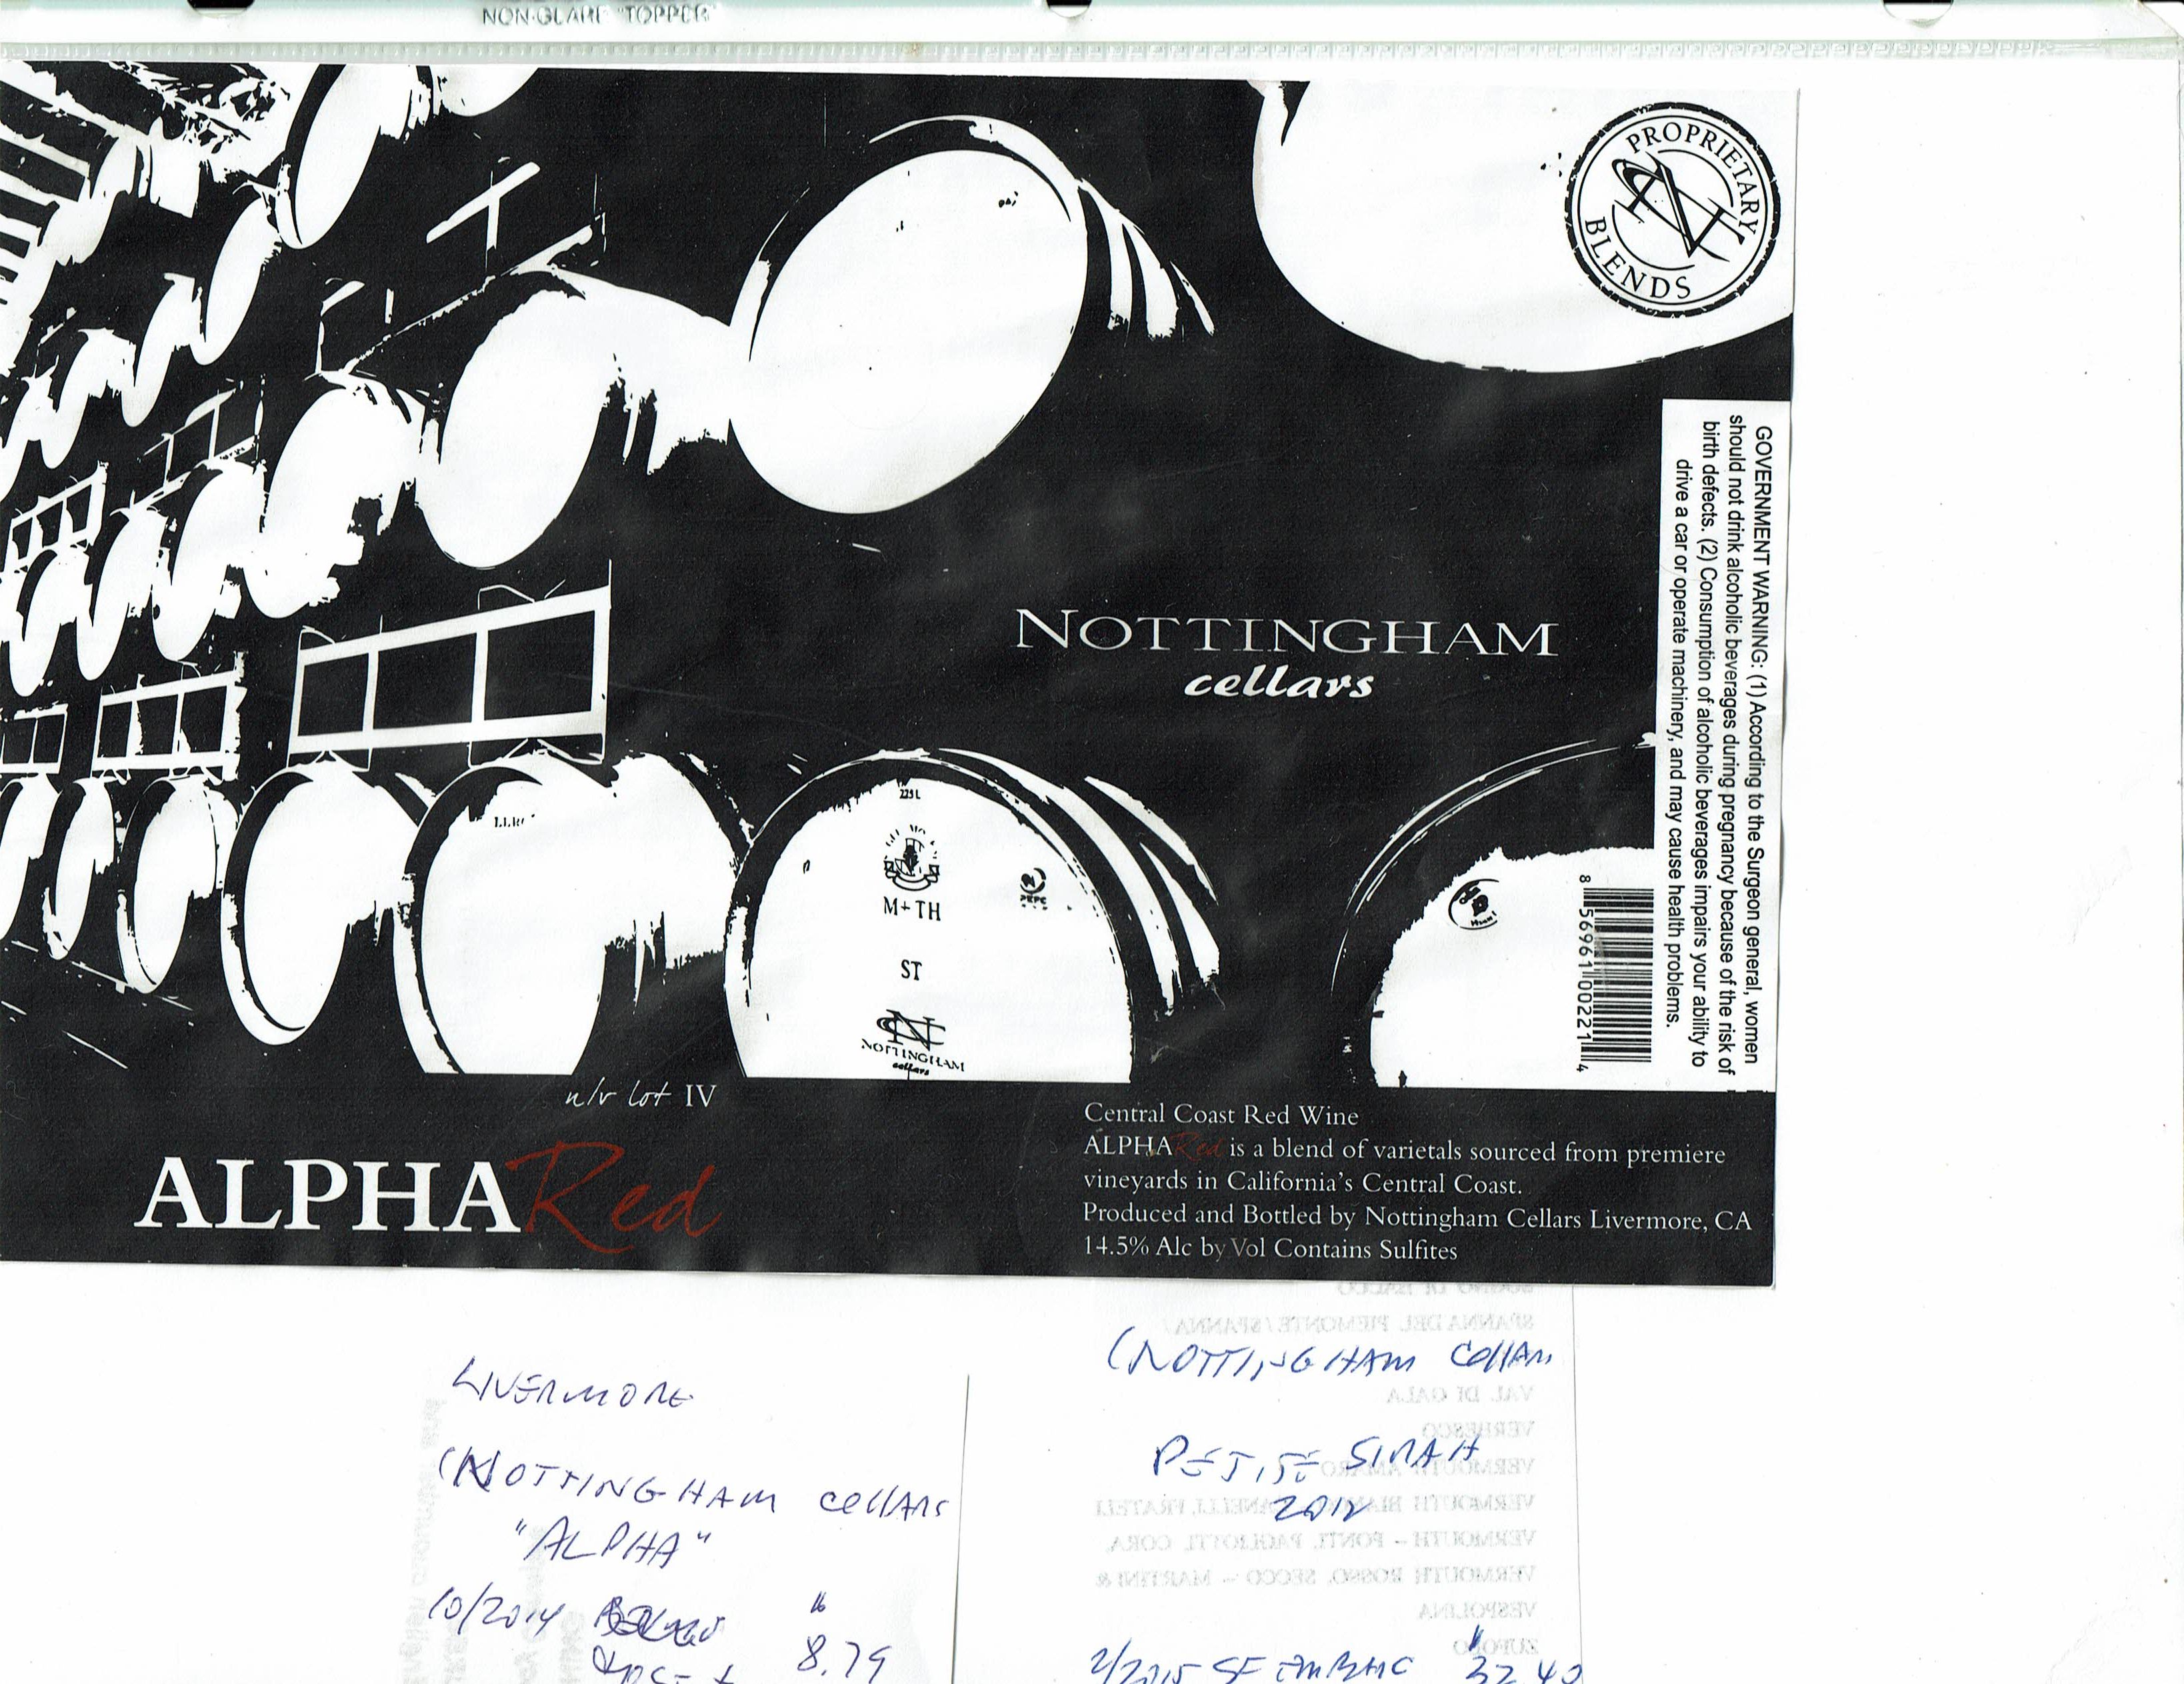 NON-GLARE "TOPPER"
PROPRIETARY
BLENDS
NOTTINGHAM
cellars
GOVERNMENT WARNING: (1) According to the Surgeon general, women
should not drink alcoholic beverages during pregnancy because of the risk of
birth defects. (2) Consumption of alcoholic beverages impairs your ability to
drive a car or operate machinery, and may cause health problems.
8 56961 00221 4
225 L
M+TH
ST
NOTTINGHAM
cellars
n/v lot IV
ALPHA Red
Central Coast Red Wine
ALPHA Red is a blend of varietals sourced from premiere
vineyards in California's Central Coast.
Produced and Bottled by Nottingham Cellars Livermore, CA
14.5% Alc by Vol Contains Sulfites
LIVERMORE
(NOTTINGHAM cellARS
"ALPHA"
10/2014
8.79
(NOTTINGHAM CellARs
PETITE SIRAH
2012
SPANNA DEL PIEMONTE / SPANNA /
VAL DI GALA
VERBESCO
VERMOUTH AMARO
VERMOUTH FRATELI
VERMOUTH – FONTI, PAGLIOTTI, CORA,
VERMOUTH ROSSO, SECCO – MARTINI &
VESPOLINA
2/2015 SF 32.40